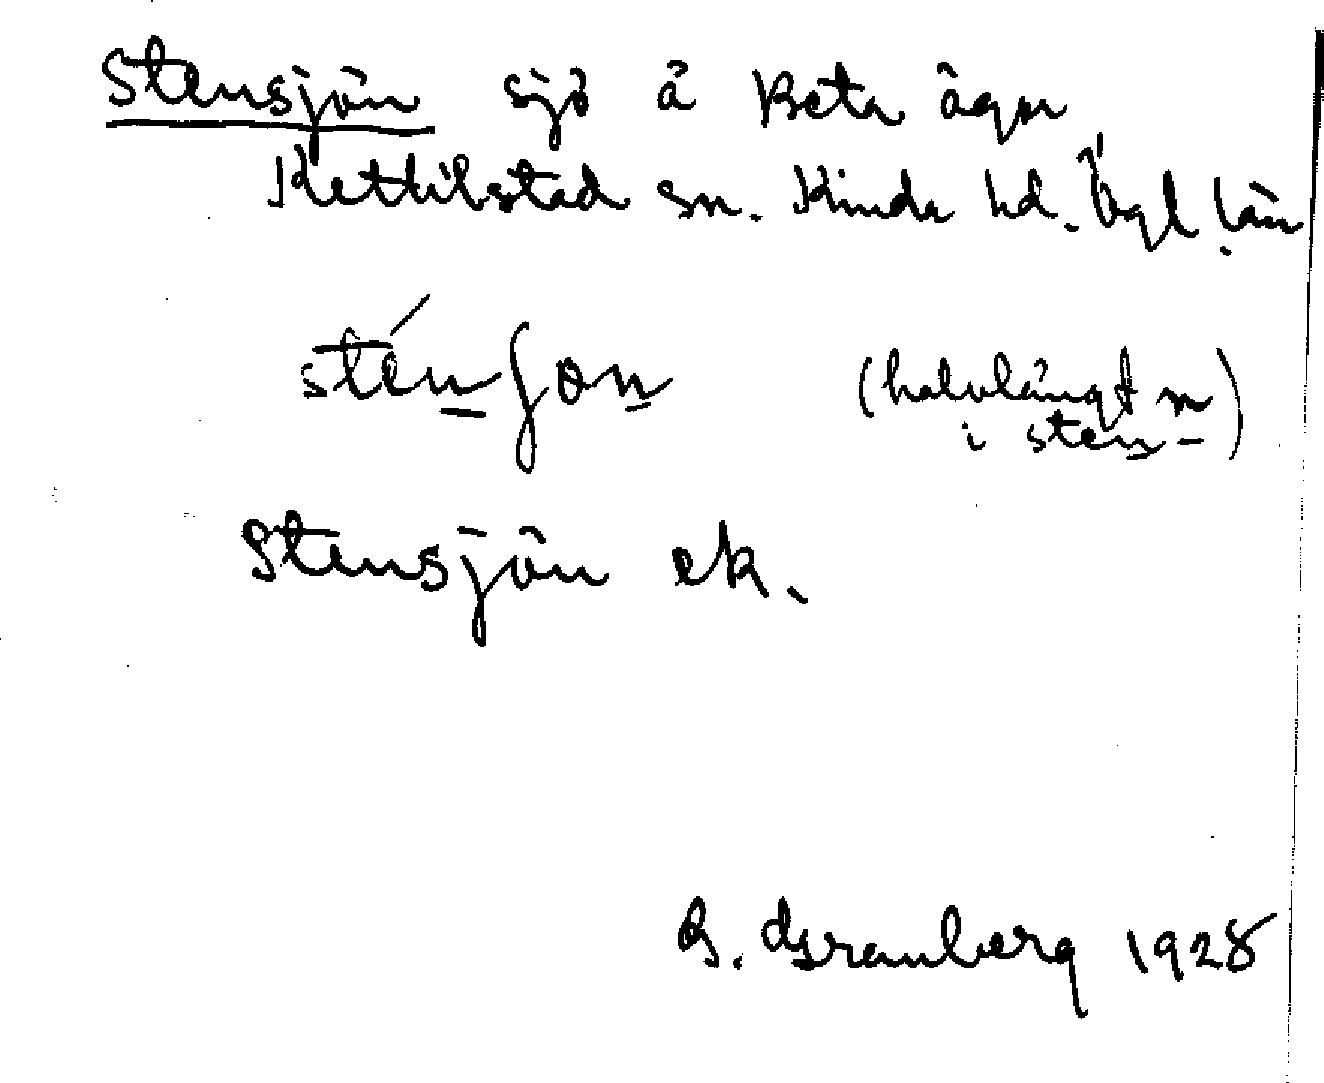 Stensjön sjö å Beta ägor
Kettilstad sn. Kinda hd. Ögl län
sténʃon (halvlångt n
i sten-)
Stensjön ek.
B. Granberg 1928